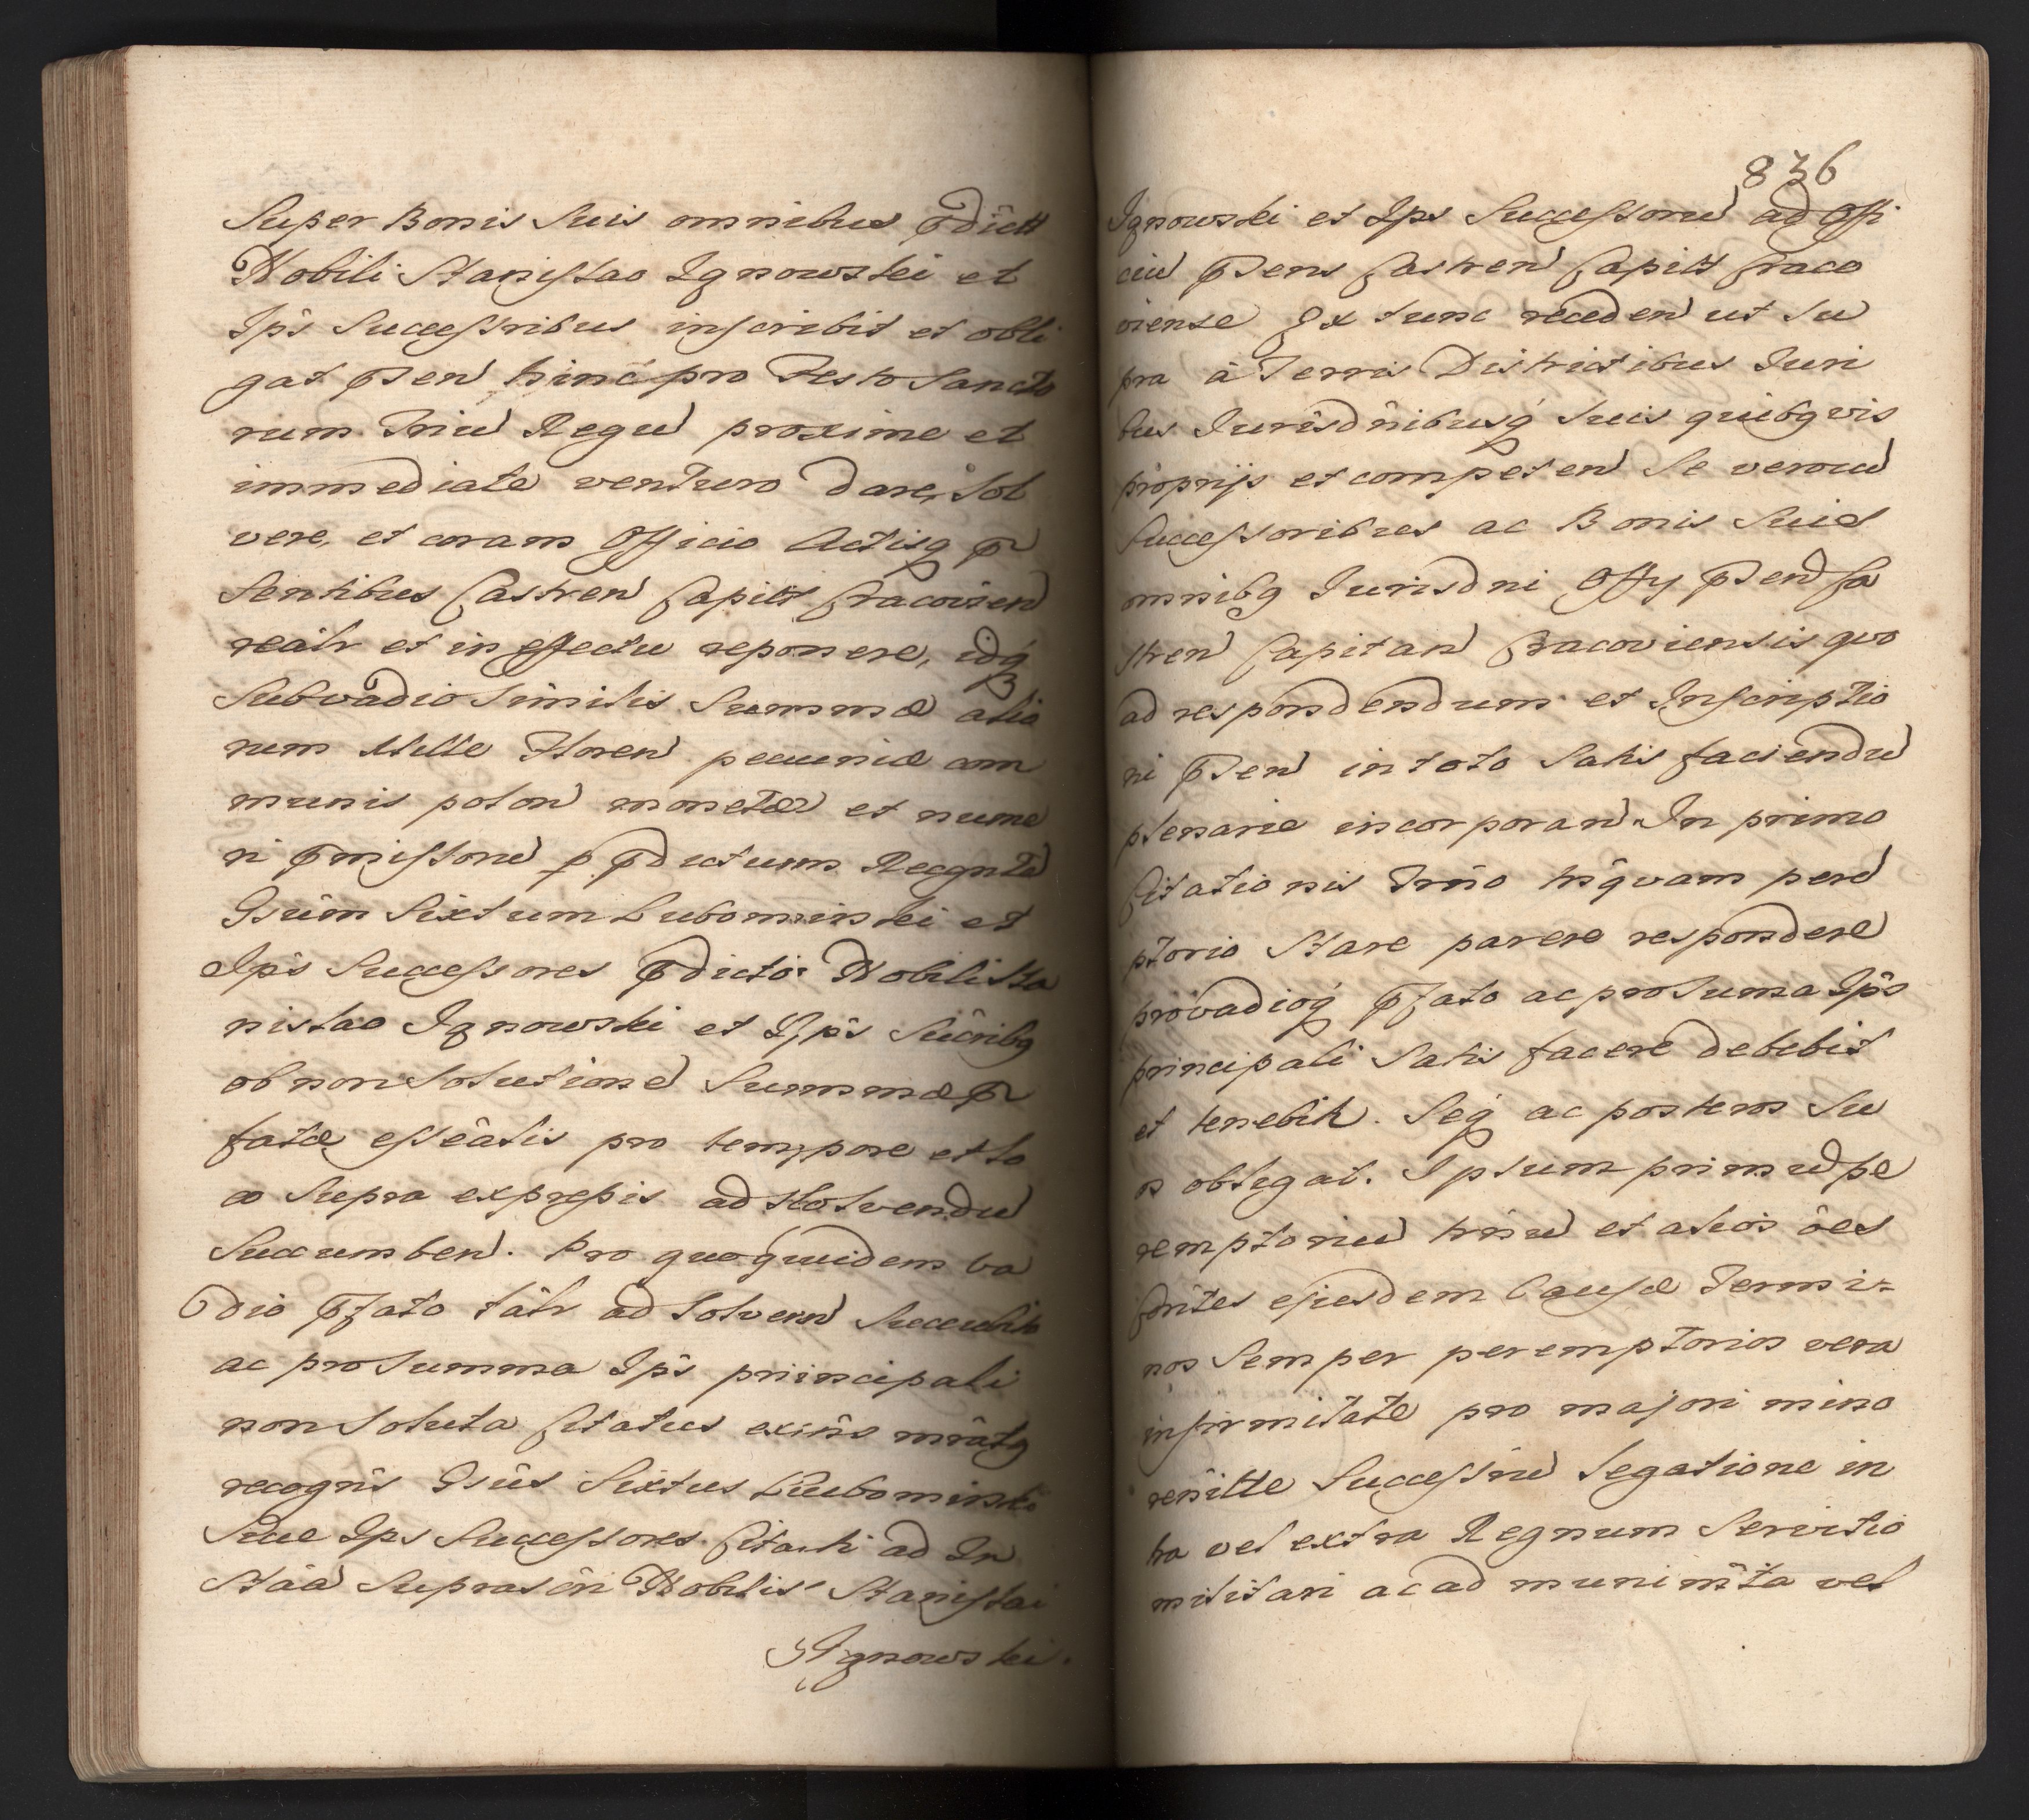 Super Bonis Suis omnibus prdictt
Nobili Stanislao Ignowski et
Ips Successribus inscribit et obli
gat prsen hinc pro Festo Sancto
rum Triu Regu proxime et
immediate venturo dare, sol
vere, et coram Officio Actisq pr
sentibus Castren Capitt Cracovien
realr et in effectu reponere, idq
Sub vadio similis Summæ alia
rum Mille Floren pecuniæ com
munis polon monetæ et nume
ri prmissoru p prdictum Recgntem
Gsum Sixtum Lubominski et
Ips Successores prdicto Nobili Sta
nislao Ignowski et Ips Sucribq
ob non Solutione Summæ pr
fatæ essealis pro tempore et lo
co Supra expressis ad Solvendu
Succumben. Pro quo quidem va
dio prfato talr ad Solven Succubito
ac pro Summa Ips principali
non Soluta Citatus exins mratq
recogns Gsus Sixtus Lubominski
Suue Ips Successores Citati ad In
staa Suprascri Nobilis Stanislai
Ignowski.
836
Ignowski et Ips Successoru ad Offi
ciu prsens Castren Capitt Craco
viense Ex tunc receden ut Su
pra a Terris Districtibus Juri
bus Jurisdnibusq Suis quibqvis
proprijs et competen Se veroru
Successoribus ac Bonis Suis
omnibq Jurisdni Offy prsen Ca
stren Capitan Cracoviensis quo
ad respondendum et Inscriptio
ni prsen in toto Satis faciendu
plenarie incorporan In primo
Citationis Trno tnquam perem
ptorio Stare parere respondere
pro vadioq prfato ac pro Suma Ips
principali Satis facere debebit
et tenebitr. Seq ac posteros Su
os obligat. Ipsum primu pe
remptoriu trnu et alios oes
Cnites ejusdem Causæ Termi-
nos Semper peremptorios vera
infirmitate pro majori mino
renitte Successru legatione in
tra vel extra Regnum Servitio
militari ac ad munimta vel